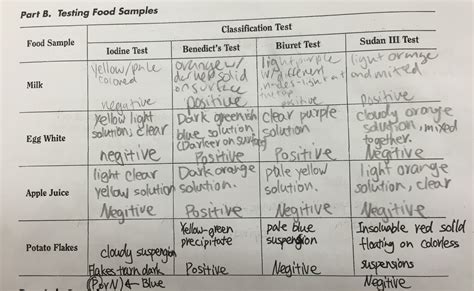 Part B. Testing Food Samples
Classification Test
Food Sample
Iodine Test
Benedict's Test
Biuret Test
Sudan III Test
Milk
yellow/pale
colored
negative
orange w/
darker solid
on surface
positive
light purple
w/ different
light at
top
positive
light orange
and mixed
positive
Egg White
Yellow light
solution, clear
negitive
Dark greenish
blue solution
(Darker on surface)
Positive
clear purple
solution
Positive
cloudy orange
solution, mixed
together.
Negitive
Apple Juice
light clear
yellow solution
Negitive
Dark orange
solution.
Positive
pale yellow
solution.
Negitive
light orange
solution, clear
Negitive
Potato Flakes
cloudy suspension
Flakes turn dark
(P or N) ← Blue
Yellow-green
precipitate
Positive
pale blue
suspension
Negitive
Insoluable red solid
floating on colorless
suspensions
Negitive